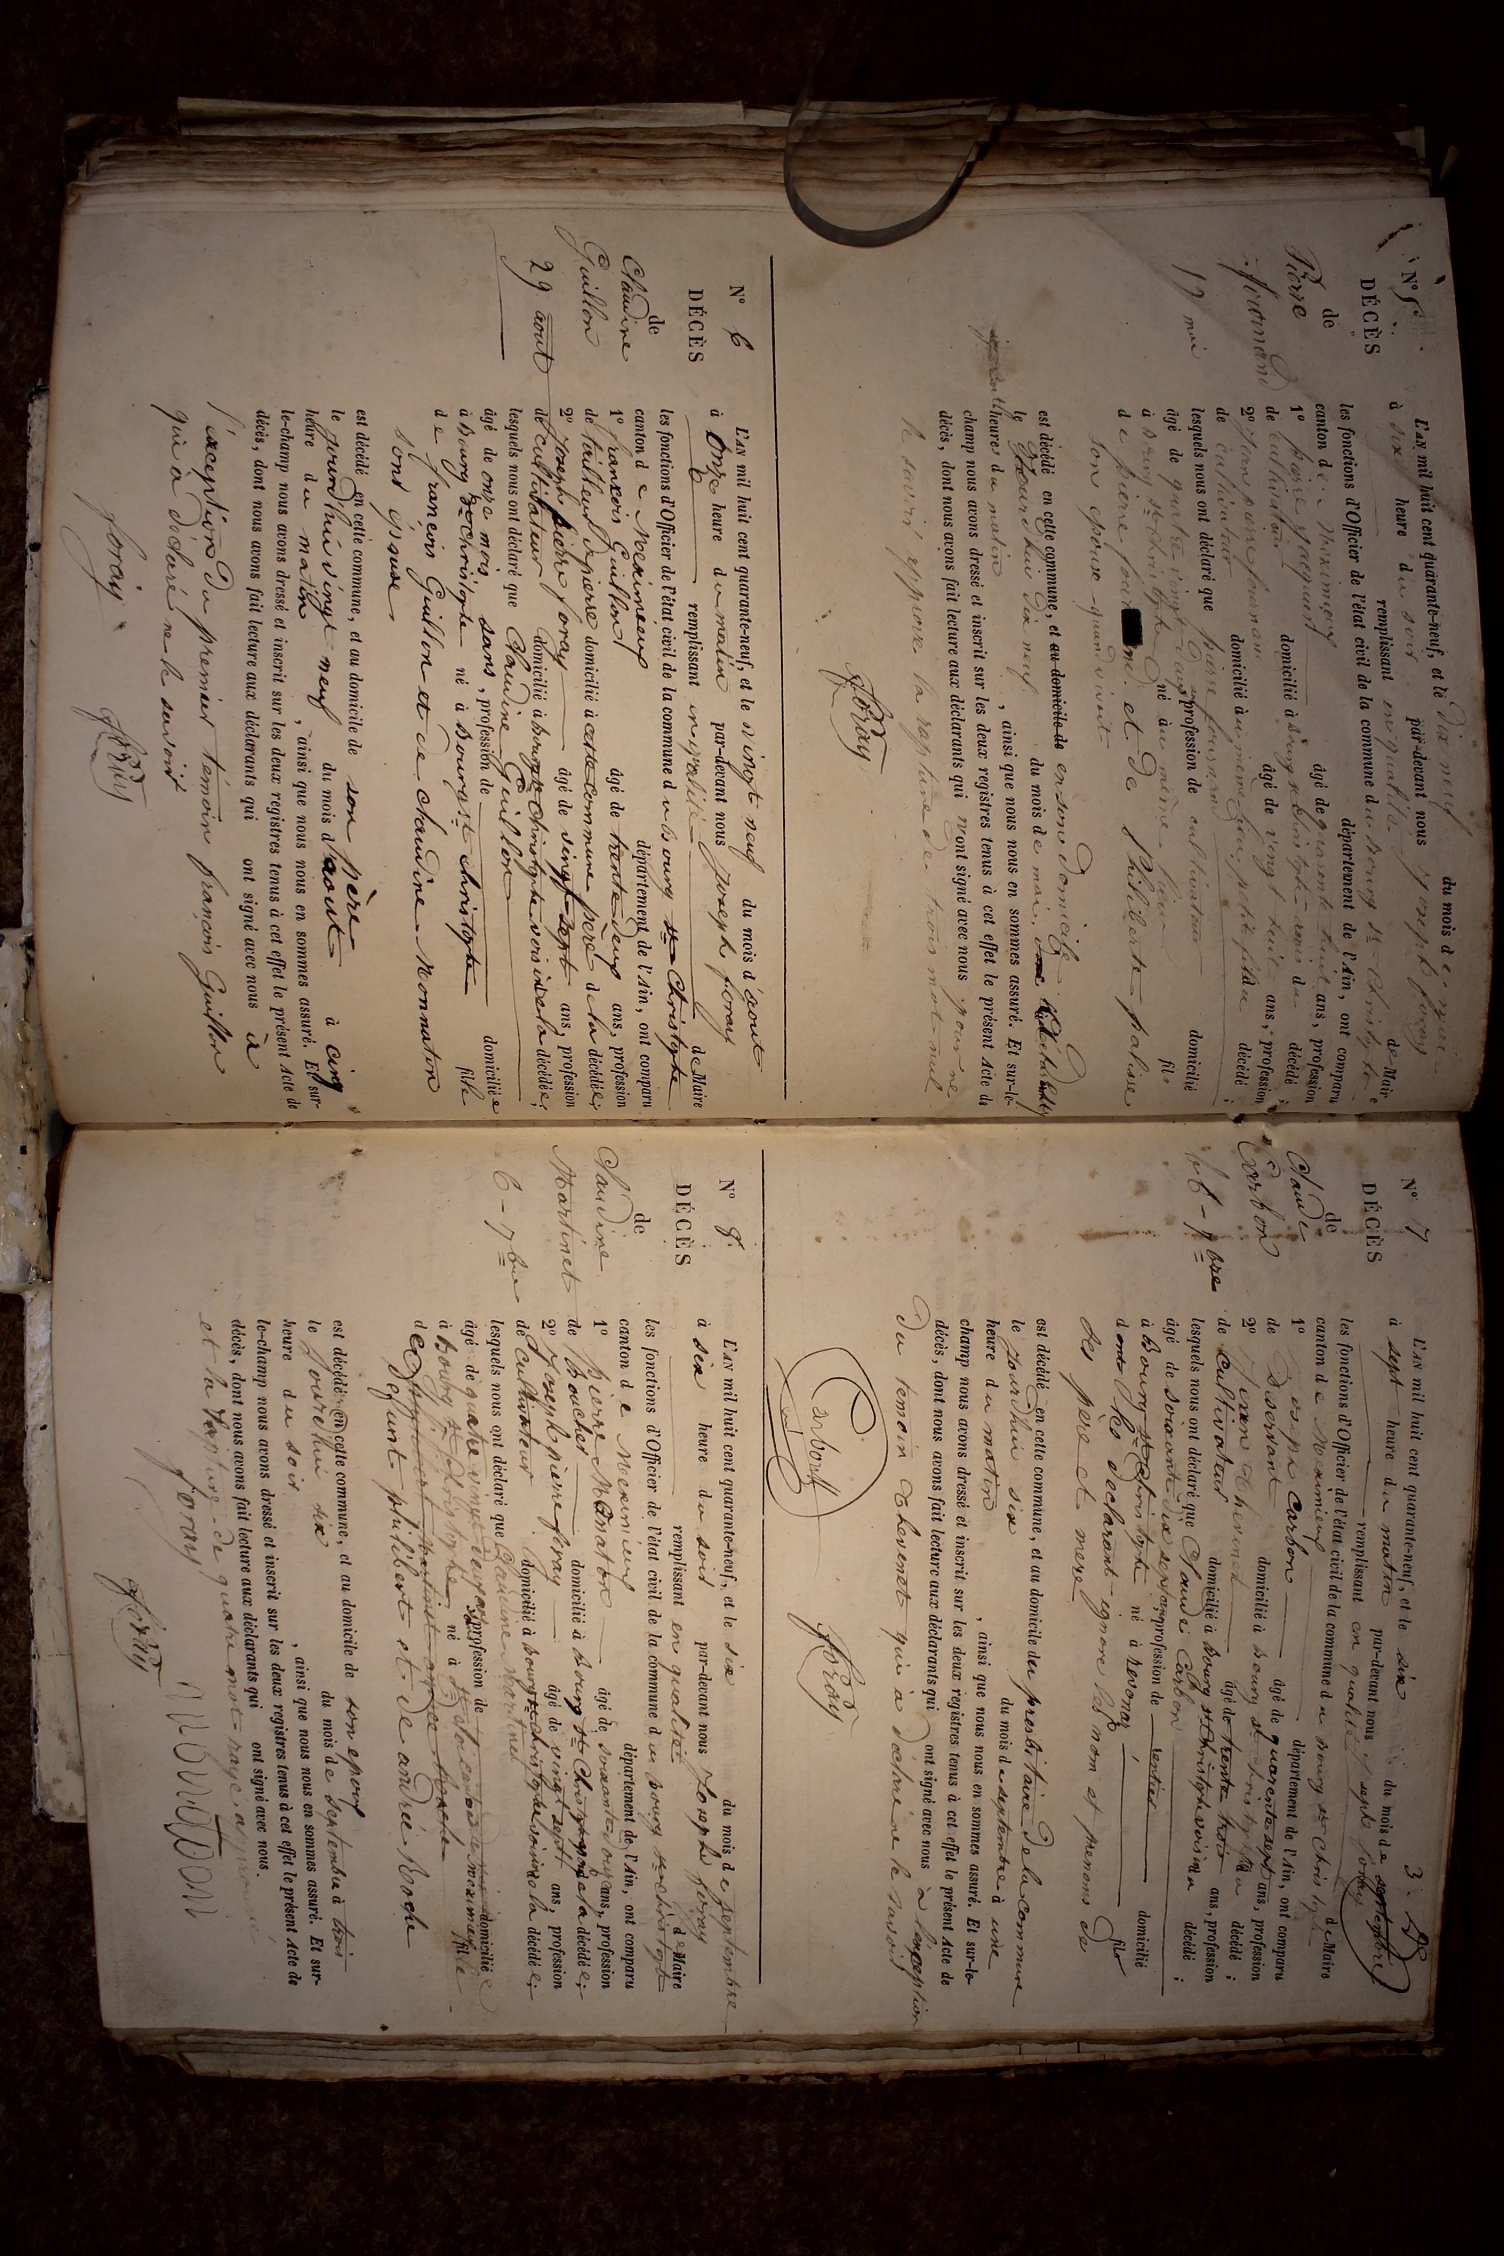 N° 5
DÉCÈS
de
Pierre
fournand
19 mai
L'AN mil huit cent quarante-neuf, et le dix neuf du mois de mai
à six heure du soir par-devant nous joseph foray
remplissant en qualité de Maire
les fonctions d'Officier de l'état civil de la commune du bourg st christophe
canton de meximieux département de l'Ain, ont comparu
1° pierre jacquant âgé de quarente huit ans, profession
de cultivateur domicilié à bourg st christophe décédé ;
2° jean pierre fournand âgé de vingt huit ans, profession
de cultivateur domicilié au meme lieu petit fils du décédé ;
lesquels nous ont déclaré que pierre fournand
âgé de quatre vingt ans profession de cultivateur domicilié
à bourg st christophe né au même lieu fils
de pierre et de philiberte palisse
son epouse quand vivoit
est décédé en cette commune, et au domicile de en son domicile
le jourdhui dix neuf du mois de mai
heure du matin , ainsi que nous nous en sommes assuré. Et sur-le-
champ nous avons dressé et inscrit sur les deux registres tenus à cet effet le présent Acte de
décès, dont nous avons fait lecture aux déclarants qui n'ont signé avec nous pour ne
le savoir approuve la rapture de trois mot nul
foray
N° 6
DÉCÈS
de
Claudine
Guillon
29 aout
L'AN mil huit cent quarante-neuf, et le vingt neuf du mois d'aout
à onze heure du matin par-devant nous joseph foray
remplissant en qualité de Maire
les fonctions d'Officier de l'état civil de la commune du bourg st christophe
canton de Meximieux département de l'Ain, ont comparu
1° francois Guillon âgé de trente deux ans, profession
de tailleur de pierre domicilié à cette commune père de la décédée ;
2° joseph pierre foray âgé de vingt sept ans, profession
de cultivateur domicilié à bourg st christophe voisin de la décédée ;
lesquels nous ont déclaré que Claudine Guillon
âgé de onze mois sans, profession de domiciliée
à bourg st christophe né à bourg st christophe fille
de francois Guillon et de claudine Monnaton
sont épouse
est décédé en cette commune, et au domicile de son père
le jourdhui vingt neuf du mois d'aout à cinq
heure du matin , ainsi que nous nous en sommes assuré. Et sur-
le-champ nous avons dressé et inscrit sur les deux registres tenus à cet effet le présent Acte de
décès, dont nous avons fait lecture aux déclarants qui ont signé avec nous à
l'exception du premier témoin françois Guillon
qui a déclaré ne le savoir
foray foray
3
N° 7
DÉCÈS
de
Claude
Carbon
6 - 7bre
L'AN mil huit cent quarante-neuf, et le six du mois de septembre
à sept heure du matin par-devant nous joseph foray
remplissant en qualité de Maire
les fonctions d'Officier de l'état civil de la commune du bourg st christophe
canton de Meximieux département de l'Ain, ont comparu
1° joseph carbon âgé de quarente sept ans, profession
de Desservant domicilié à bourg st christophe décédé ;
2° jean thevenet âgé de trente trois ans, profession
de cultivateur domicilié à bourg st christophe voisin du décédé ;
lesquels nous ont déclaré que Claude Carbon
âgé de soixante dix sept ans, profession de rentier domicilié
à bourg st christophe né à fils
dont les déclarant ignore les nom et prenoms de
ses père et mere
est décédé en cette commune, et au domicile du presbitaire de la commune
le jourdhui six du mois de septembre à une
heure du matin , ainsi que nous nous en sommes assuré. Et sur-le-
champ nous avons dressé et inscrit sur les deux registres tenus à cet effet le présent Acte de
décès, dont nous avons fait lecture aux déclarants qui ont signé avec nous à l'exception
du temoin thevenet qui a déclaré ne le savoir
Carbon foray
N° 8
DÉCÈS
de
Claudine
Martinet
6 - 7bre
L'AN mil huit cent quarante-neuf, et le six du mois de septembre
à six heure du soir par-devant nous joseph foray
remplissant en qualité de Maire
les fonctions d'Officier de l'état civil de la commune du bourg st christophe
canton de Meximieux département de l'Ain, ont comparu
1° pierre Monaton âgé de soixante ans, profession
de Boucher domicilié à bourg st christophe de la décédée ;
2° joseph pierre foray âgé de vingt sept ans, profession
de cultivateur domicilié à bourg st christophe voisin de la décédée ;
lesquels nous ont déclaré que claudine martinet
âgé de quatre vingt deux ans sans profession de domiciliée
à bourg st christophe né à fille
de défunt philibert et de andrée Roche
est décédé en cette commune, et au domicile de son epoux
le jourdhui six du mois de septembre à trois
heure du soir , ainsi que nous nous en sommes assuré. Et sur-
le-champ nous avons dressé et inscrit sur les deux registres tenus à cet effet le présent Acte de
décès, dont nous avons fait lecture aux déclarants qui ont signé avec nous.
et la rapture de quatre mots rayé approuvé
foray Monaton
foray